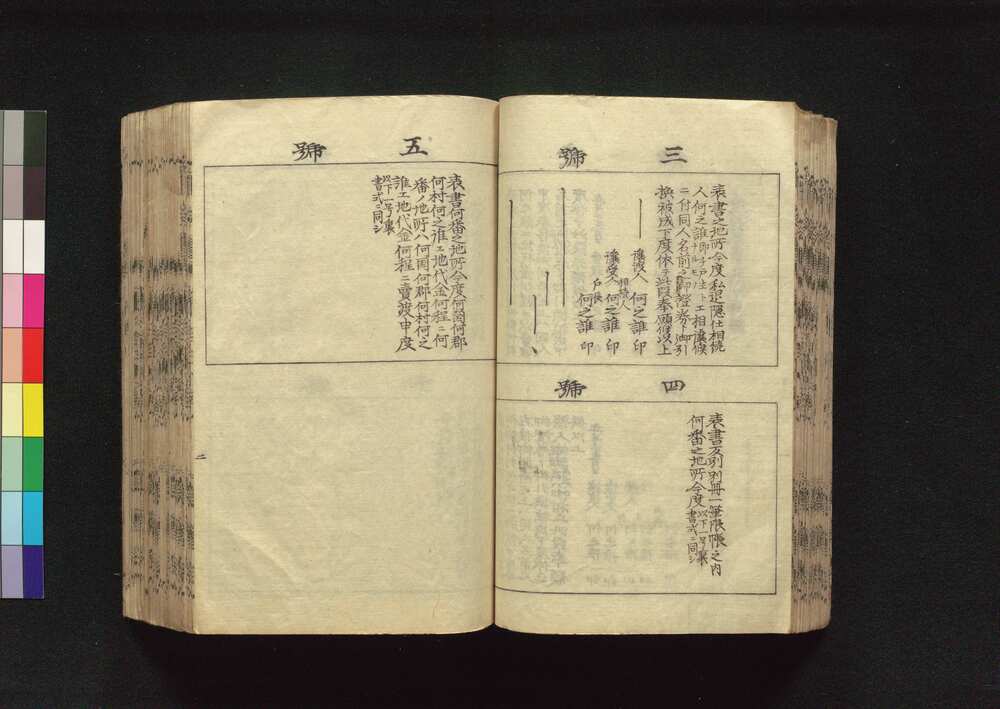 三號
表書之地所今度私退隠仕相続
人何之誰
ニ付同人名前之御證券ト御引
換被成下度依テ此段奉願候以上
譲渡人 何之誰 印
相続人
譲受人 何之誰 印
戸長 何之誰 印
四號
表書反別別冊一筆限帳之内
何番之地所今度以下一号裏
書式ニ同シ
五號
表書何番之地所今度何国何郡
何村何之誰エ地代金何程ニ何
番ノ地所ハ何国何郡何村何之
誰エ地代金何程ニ賣渡申度
以下一号裏
書式ニ同シ
二